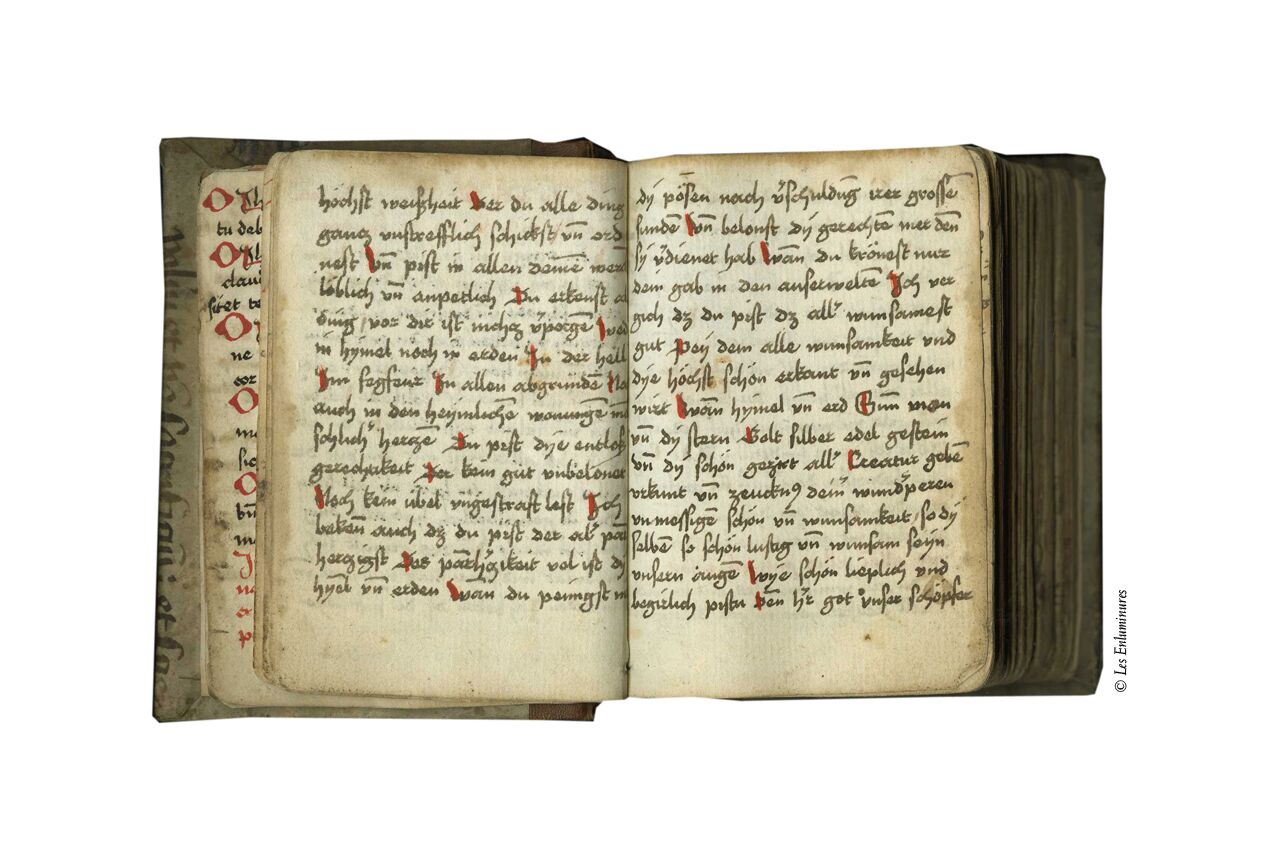 tu deb
claui
sitet te
ne
cor
me
sic
höchst weißheit Der du alle ding
gancz vnstrefflich schickst vn̄ ord
nest Vn̄ pist in allen deinē werck
löblich vn̄ anpetlich Du erkenst al
ding, vor dir ist nichcz v̓porgē wed
in hymel noch in erden In der hell
Im fegfeur In allen abgrundē No
auch in den heymlichē wonungē m
schlichʼ herczē Du pist dye entlos
gerechtikeit Der kein gut vnbelonet
Noch kein übel vngestraft lest Ich
bekeñ auch dz du pist der alʼ pār
herczigst Des pārhʼczikeit vol ist dy
hy̅el vn̄ erden Wān du peinigst in
dy pösen nach v̓schuldūg irer grossē
sunden Vn̄ belonst dy gerechtē mer dēn
sy v̓dienet hab Wān du krönest nur
dein gab in den auserweltē Ich ver
gich dz du pist dz allʼ wunsamest
gut Pey dem alle wunsamkeit vnd
dye höchst schön erkant vn̄ gesehen
wirt Wān hymel vn̄ erd Sunn mon
vn̄ dy stern Golt silber edel gestein
vn̄ dy schön gezirt allʼ Creatur gebē
vrkunt vn̄ zeucknꝰ deinʼ wundʼperen
vnmessigē schön vn̄ wunsamkeit, so dy
selbē so schön lustig vn̄ wunsam seyn
vnsern augē Wye schön lieplich vnd
begirlich pistu Den hʼr got vnser schöpfer
© Les Enluminures